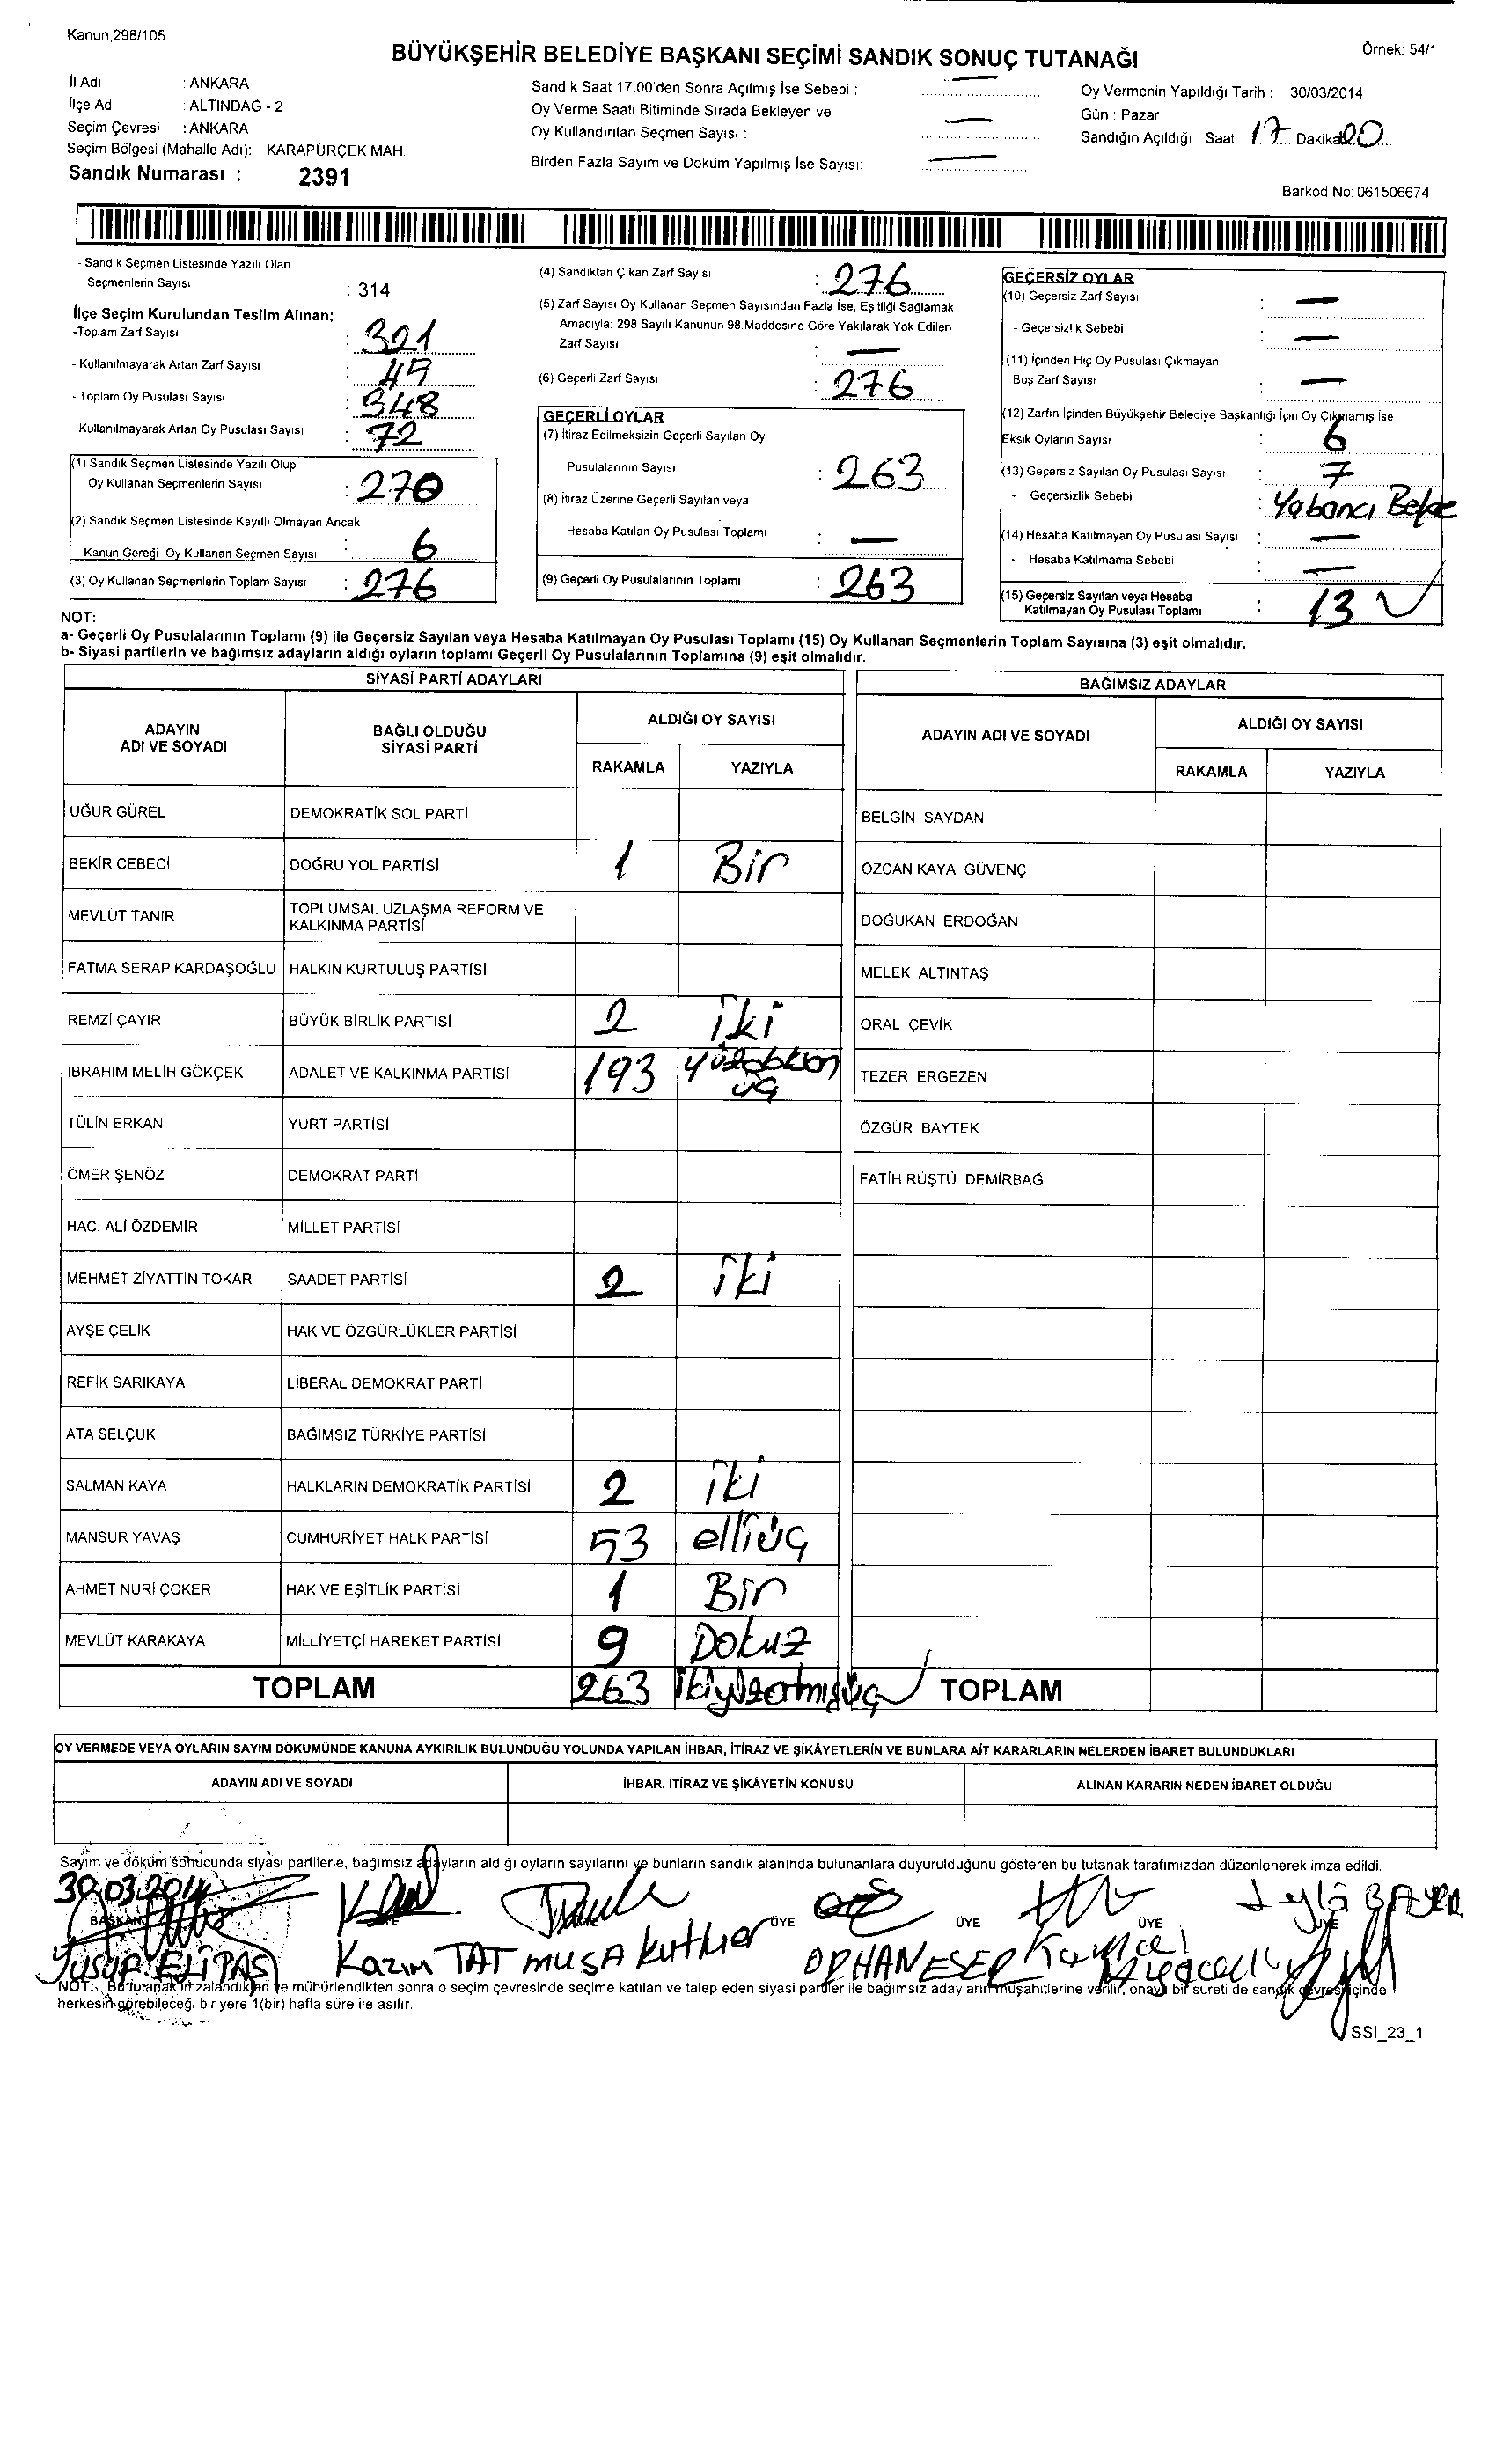 Kanun;298/105
Örnek: 54/1
BÜYÜKŞEHİR BELEDİYE BAŞKANI SEÇİMİ SANDIK SONUÇ TUTANAĞI
İl Adı : ANKARA
İlçe Adı : ALTINDAĞ - 2
Seçim Çevresi : ANKARA
Seçim Bölgesi (Mahalle Adı): KARAPÜRÇEK MAH.
Sandık Numarası : 2391
Sandık Saat 17.00'den Sonra Açılmış İse Sebebi : —
Oy Verme Saati Bitiminde Sırada Bekleyen ve
Oy Kullandırılan Seçmen Sayısı : —
Birden Fazla Sayım ve Döküm Yapılmış İse Sayısı: —
Oy Vermenin Yapıldığı Tarih : 30/03/2014
Gün : Pazar
Sandığın Açıldığı Saat 17 Dakika 20
Barkod No: 061506674
- Sandık Seçmen Listesinde Yazılı Olan
Seçmenlerin Sayısı : 314
İlçe Seçim Kurulundan Teslim Alınan;
-Toplam Zarf Sayısı : 321
- Kullanılmayarak Artan Zarf Sayısı : 45
- Toplam Oy Pusulası Sayısı : 348
- Kullanılmayarak Artan Oy Pusulası Sayısı : 72
(1) Sandık Seçmen Listesinde Yazılı Olup
Oy Kullanan Seçmenlerin Sayısı : 270
(2) Sandık Seçmen Listesinde Kayıtlı Olmayan Ancak
Kanun Gereği Oy Kullanan Seçmen Sayısı : 6
(3) Oy Kullanan Seçmenlerin Toplam Sayısı : 276
(4) Sandıktan Çıkan Zarf Sayısı : 276
(5) Zarf Sayısı Oy Kullanan Seçmen Sayısından Fazla İse, Eşitliği Sağlamak
Amacıyla: 298 Sayılı Kanunun 98.Maddesine Göre Yakılarak Yok Edilen
Zarf Sayısı : —
(6) Geçerli Zarf Sayısı : 276
GEÇERLİ OYLAR
(7) İtiraz Edilmeksizin Geçerli Sayılan Oy
Pusulalarının Sayısı : 263
(8) İtiraz Üzerine Geçerli Sayılan veya
Hesaba Katılan Oy Pusulası Toplamı : —
(9) Geçerli Oy Pusulalarının Toplamı : 263
GEÇERSİZ OYLAR
(10) Geçersiz Zarf Sayısı : —
- Geçersizlik Sebebi : —
(11) İçinden Hiç Oy Pusulası Çıkmayan
Boş Zarf Sayısı : —
(12) Zarfın İçinden Büyükşehir Belediye Başkanlığı İçin Oy Çıkmamış İse
Eksik Oyların Sayısı : 6
(13) Geçersiz Sayılan Oy Pusulası Sayısı : 7
- Geçersizlik Sebebi : Yabancı
(14) Hesaba Katılmayan Oy Pusulası Sayısı : —
- Hesaba Katılmama Sebebi : —
(15) Geçersiz Sayılan veya Hesaba
Katılmayan Oy Pusulası Toplamı : 13
NOT:
a- Geçerli Oy Pusulalarının Toplamı (9) ile Geçersiz Sayılan veya Hesaba Katılmayan Oy Pusulası Toplamı (15) Oy Kullanan Seçmenlerin Toplam Sayısına (3) eşit olmalıdır.
b- Siyasi partilerin ve bağımsız adayların aldığı oyların toplamı Geçerli Oy Pusulalarının Toplamına (9) eşit olmalıdır.
SİYASİ PARTİ ADAYLARI
ADAYIN ADI VE SOYADI BAĞLI OLDUĞU SİYASİ PARTİ ALDIĞI OY SAYISI
RAKAMLA YAZIYLA
UĞUR GÜREL DEMOKRATİK SOL PARTİ
BEKİR CEBECİ DOĞRU YOL PARTİSİ 1 Bir
MEVLÜT TANIR TOPLUMSAL UZLAŞMA REFORM VE KALKINMA PARTİSİ
FATMA SERAP KARDAŞOĞLU HALKIN KURTULUŞ PARTİSİ
REMZİ ÇAYIR BÜYÜK BİRLİK PARTİSİ 2 iki
İBRAHİM MELİH GÖKÇEK ADALET VE KALKINMA PARTİSİ 193 yüzdoksan üç
TÜLİN ERKAN YURT PARTİSİ
ÖMER ŞENÖZ DEMOKRAT PARTİ
HACI ALİ ÖZDEMİR MİLLET PARTİSİ
MEHMET ZİYATTİN TOKAR SAADET PARTİSİ 2 iki
AYŞE ÇELİK HAK VE ÖZGÜRLÜKLER PARTİSİ
REFİK SARIKAYA LİBERAL DEMOKRAT PARTİ
ATA SELÇUK BAĞIMSIZ TÜRKİYE PARTİSİ
SALMAN KAYA HALKLARIN DEMOKRATİK PARTİSİ 2 iki
MANSUR YAVAŞ CUMHURİYET HALK PARTİSİ 53 elliüç
AHMET NURİ ÇOKER HAK VE EŞİTLİK PARTİSİ 1 Bir
MEVLÜT KARAKAYA MİLLİYETÇİ HAREKET PARTİSİ 9 Dokuz
TOPLAM 263 ikiyüzatmışüç
BAĞIMSIZ ADAYLAR
ADAYIN ADI VE SOYADI ALDIĞI OY SAYISI
RAKAMLA YAZIYLA
BELGİN SAYDAN
ÖZCAN KAYA GÜVENÇ
DOĞUKAN ERDOĞAN
MELEK ALTINTAŞ
ORAL ÇEVİK
TEZER ERGEZEN
ÖZGÜR BAYTEK
FATİH RÜŞTÜ DEMİRBAĞ
TOPLAM
OY VERMEDE VEYA OYLARIN SAYIM DÖKÜMÜNDE KANUNA AYKIRILIK BULUNDUĞU YOLUNDA YAPILAN İHBAR, İTİRAZ VE ŞİKÂYETLERİN VE BUNLARA AİT KARARLARIN NELERDEN İBARET BULUNDUKLARI
ADAYIN ADI VE SOYADI İHBAR, İTİRAZ VE ŞİKÂYETİN KONUSU ALINAN KARARIN NEDEN İBARET OLDUĞU
Sayım ve döküm sonucunda siyasi partilerle, bağımsız adayların aldığı oyların sayılarını ve bunların sandık alanında bulunanlara duyurulduğunu gösteren bu tutanak tarafımızdan düzenlenerek imza edildi.
30.03.2014
BAŞKAN ÜYE ÜYE ÜYE ÜYE
Leyla BAYER
YUSUF ELİPAŞ Kazım TAT MUSA Kutluer ORHAN ESER
NOT: Bu tutanak imzalandıktan ve mühürlendikten sonra o seçim çevresinde seçime katılan ve talep eden siyasi partiler ile bağımsız adayların müşahitlerine verilir, onaylı bir sureti de sandık çevresi içinde
herkesin görebileceği bir yere 1(bir) hafta süre ile asılır.
SSI_23_1